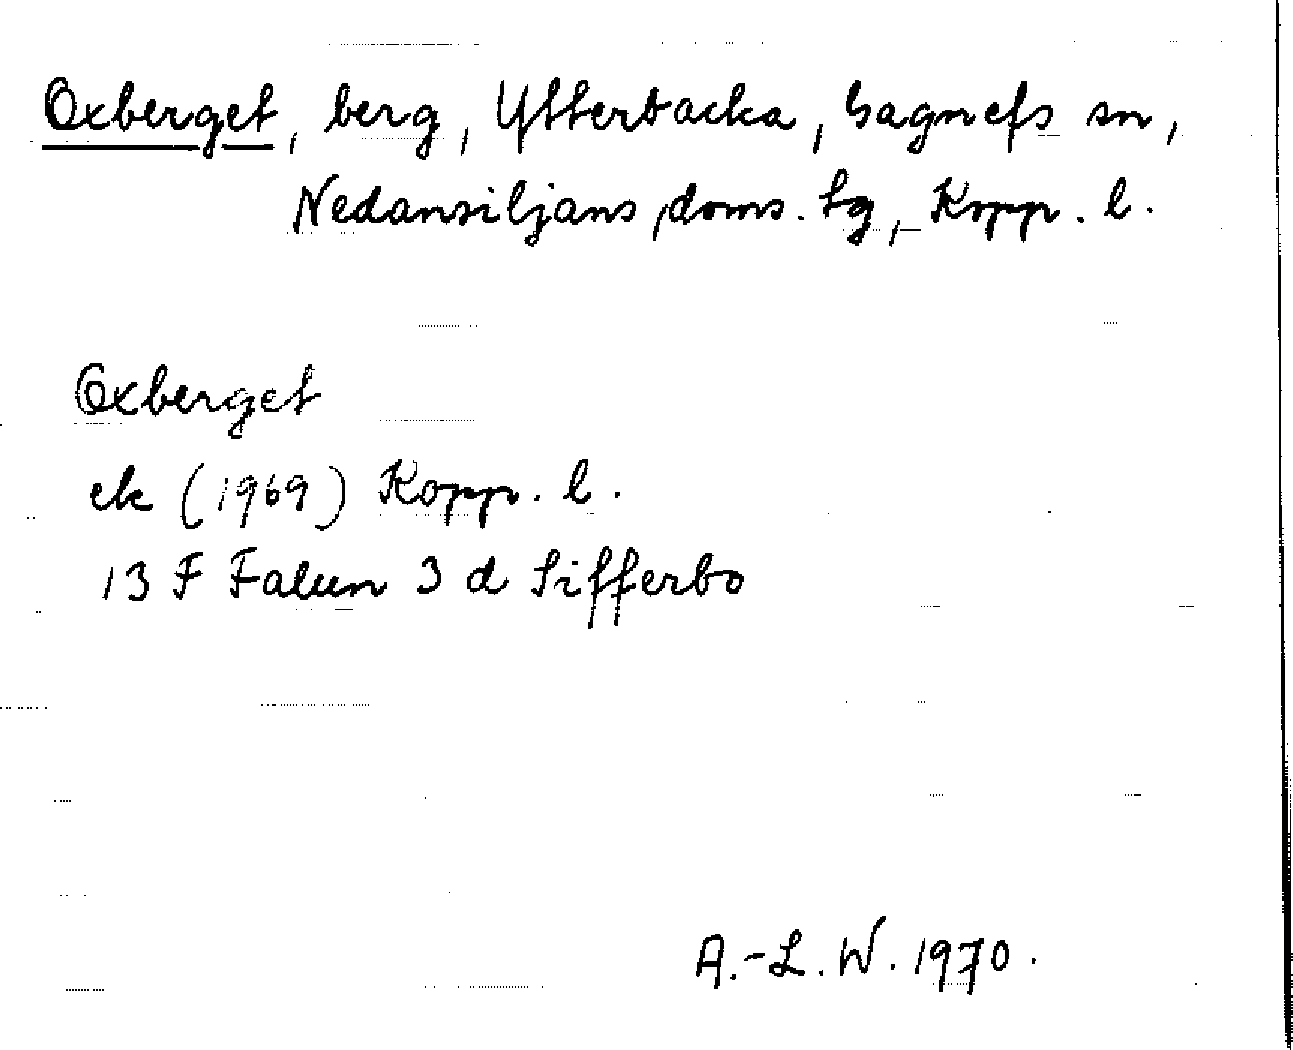 Oxberget, berg, Ytterbacka, Gagnefs sn,
Nedansiljans doms. tg, Kopp. l.
Oxberget
ek (1969) Kopp. l.
13 F Falun 3 d Sifferbo
A.-L. W. 1970.